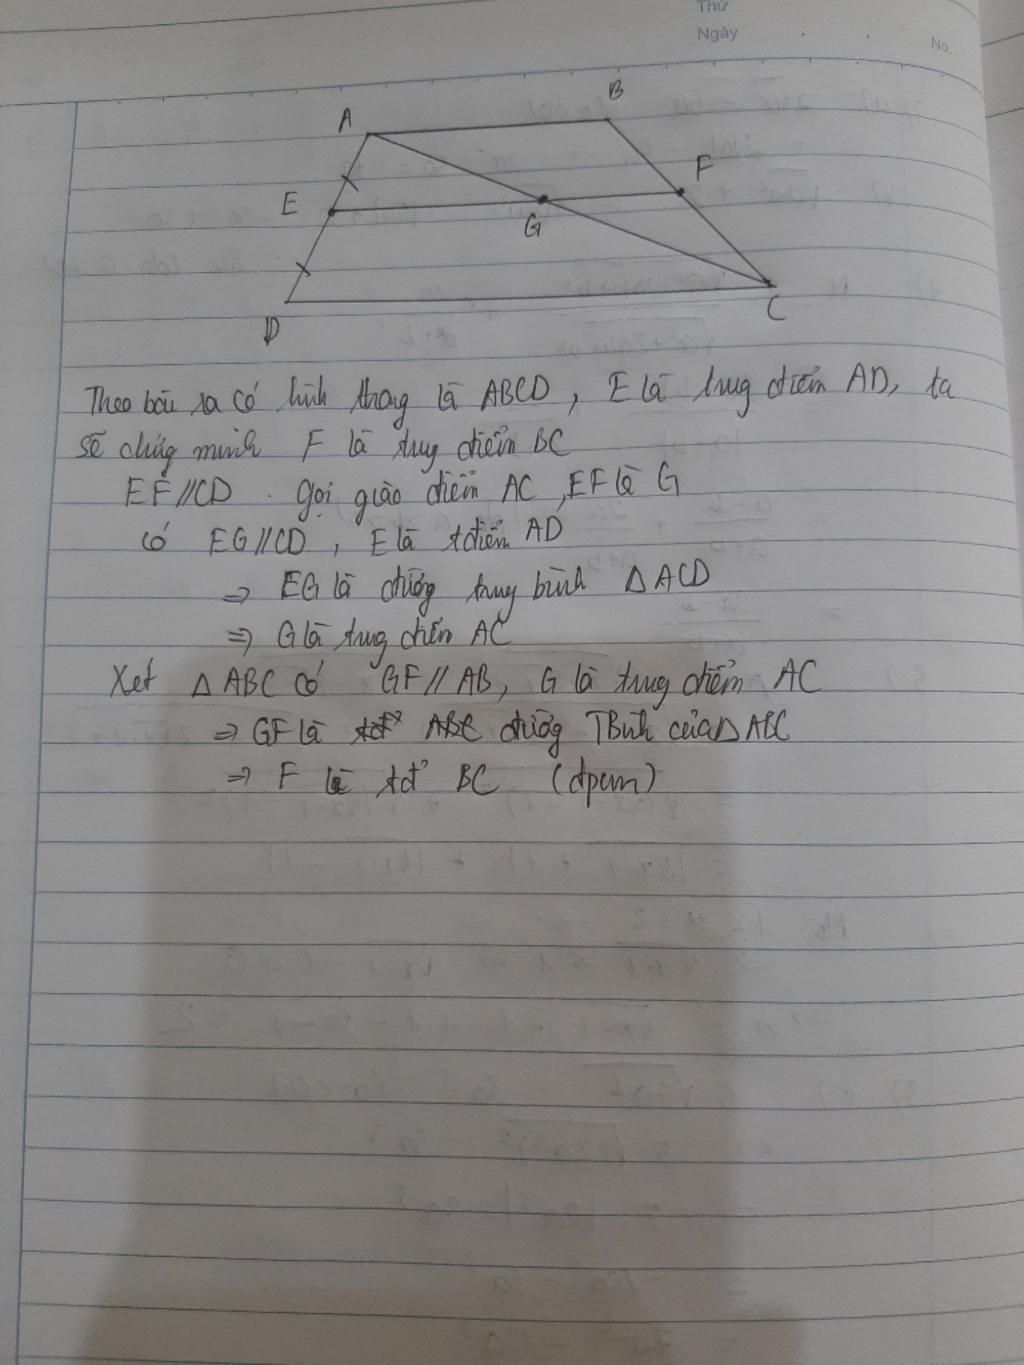 Thứ
Ngày
No.
A
B
E
F
G
D
C
Theo bài ra có hình thang là ABCD, E là trug điểm AD, ta
sẽ chứg minh F là trug điểm BC
EF // CD . Gọi giao điểm AC, EF là G
có EG // CD, E là tđiểm AD
=> EG là đườg trug bình Δ ACD
=> G là trug điểm AC
Xét Δ ABC có GF // AB, G là trug điểm AC
=> GF là đườg TBình của Δ ABC
=> F là tđ' BC (đpcm)